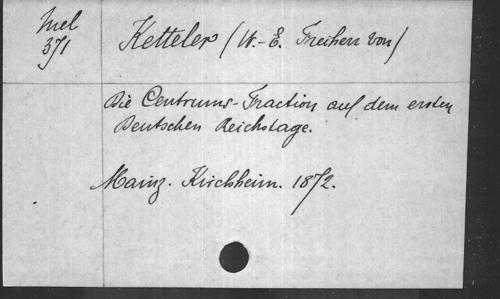 Mel
371
Ketteler (W.-E. Freiherr von)
Die Centrums-Fraction auf dem ersten
Deutschen Reichstage.
Mainz. Kirchheim. 1872.